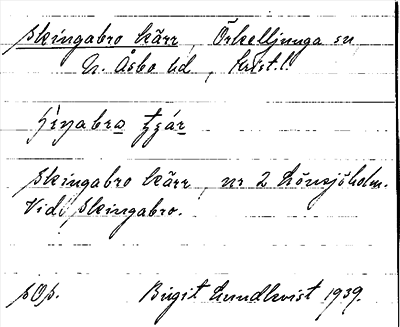 Skingabro kärr, Örkelljunga sn
N. Åsbo hd, Krist.l.
Skingabro kärr, nr 2 Lönsjöholm.
Vid Skingabro.
sOs. Birgit Lundkvist 1939.